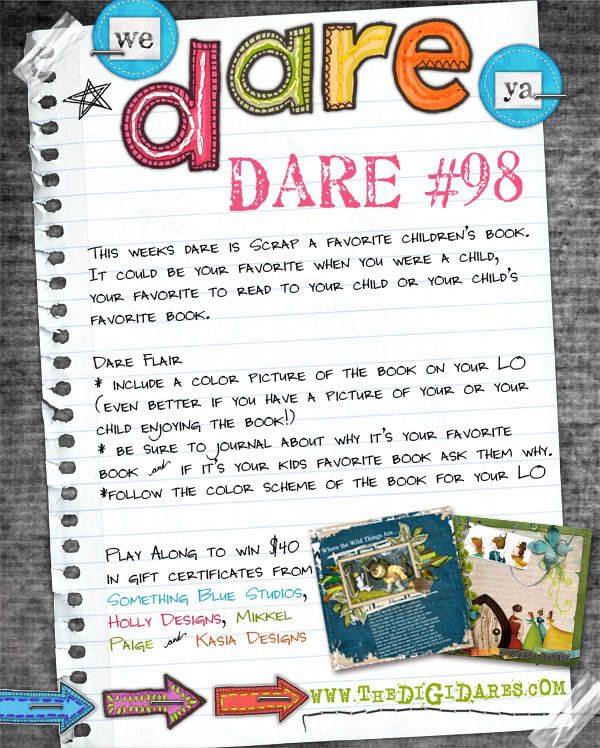 we
dare
ya
DARE #98
This weeks dare is scrap a favorite children's book.
It could be your favorite when you were a child,
your favorite to read to your child or your child's
favorite book.
Dare Flair
* include a color picture of the book on your LO
(even better if you have a picture of your or your
child enjoying the book!)
* be sure to journal about why it's your favorite
book and if it's your kids favorite book ask them why.
*follow the color scheme of the book for your LO
Play Along to win $40
in gift certificates from
Something Blue Studios,
Holly Designs, Mikkel
Paige and Kasia Designs
Where the Wild Things Are...
www.TheDiGiDares.com